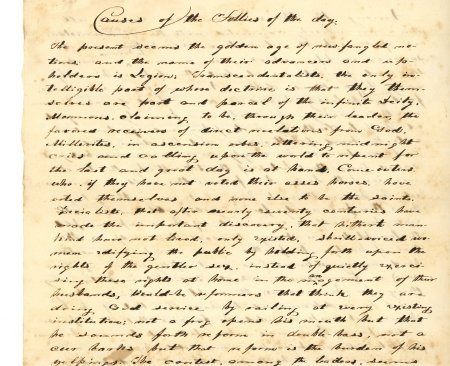 Causes of the Follies of the day.
The present seems the golden age of new fangled no-
tions, and the name of their advancers and up-
holders is Legion, Transcendentalists, the only in-
telligible part of whose doctrine is that they them-
selves are part and parcel of the infinite Deity;
Mormons, claiming to be, through their leader, the
favored receivers of direct revelations from God,
Millerites, in ascension robes, uttering midnight
cries and calling upon the world to repent for
the last and great day is at hand, Come-outers,
who, if they have not voted their asses horses, have
voted themselves and none else to be the saints.
Socialists, that after seventy centuries have
made the important discovery, that hitherto man-
kind have not lived, only existed, shrill voiced wo-
men edifying the public by holding forth upon the
rights of the gentler sex, instead of quietly exerci-
sing these rights at home in the management of their
husbands, Would-be reformers that think they are
doing God service by railing at every existing
institution; not a frog opens his mouth but that
he sounds forth reform in double bass, not a
cur barks but that reform is the burden of his
yelpings. The contest, among the leaders, seems